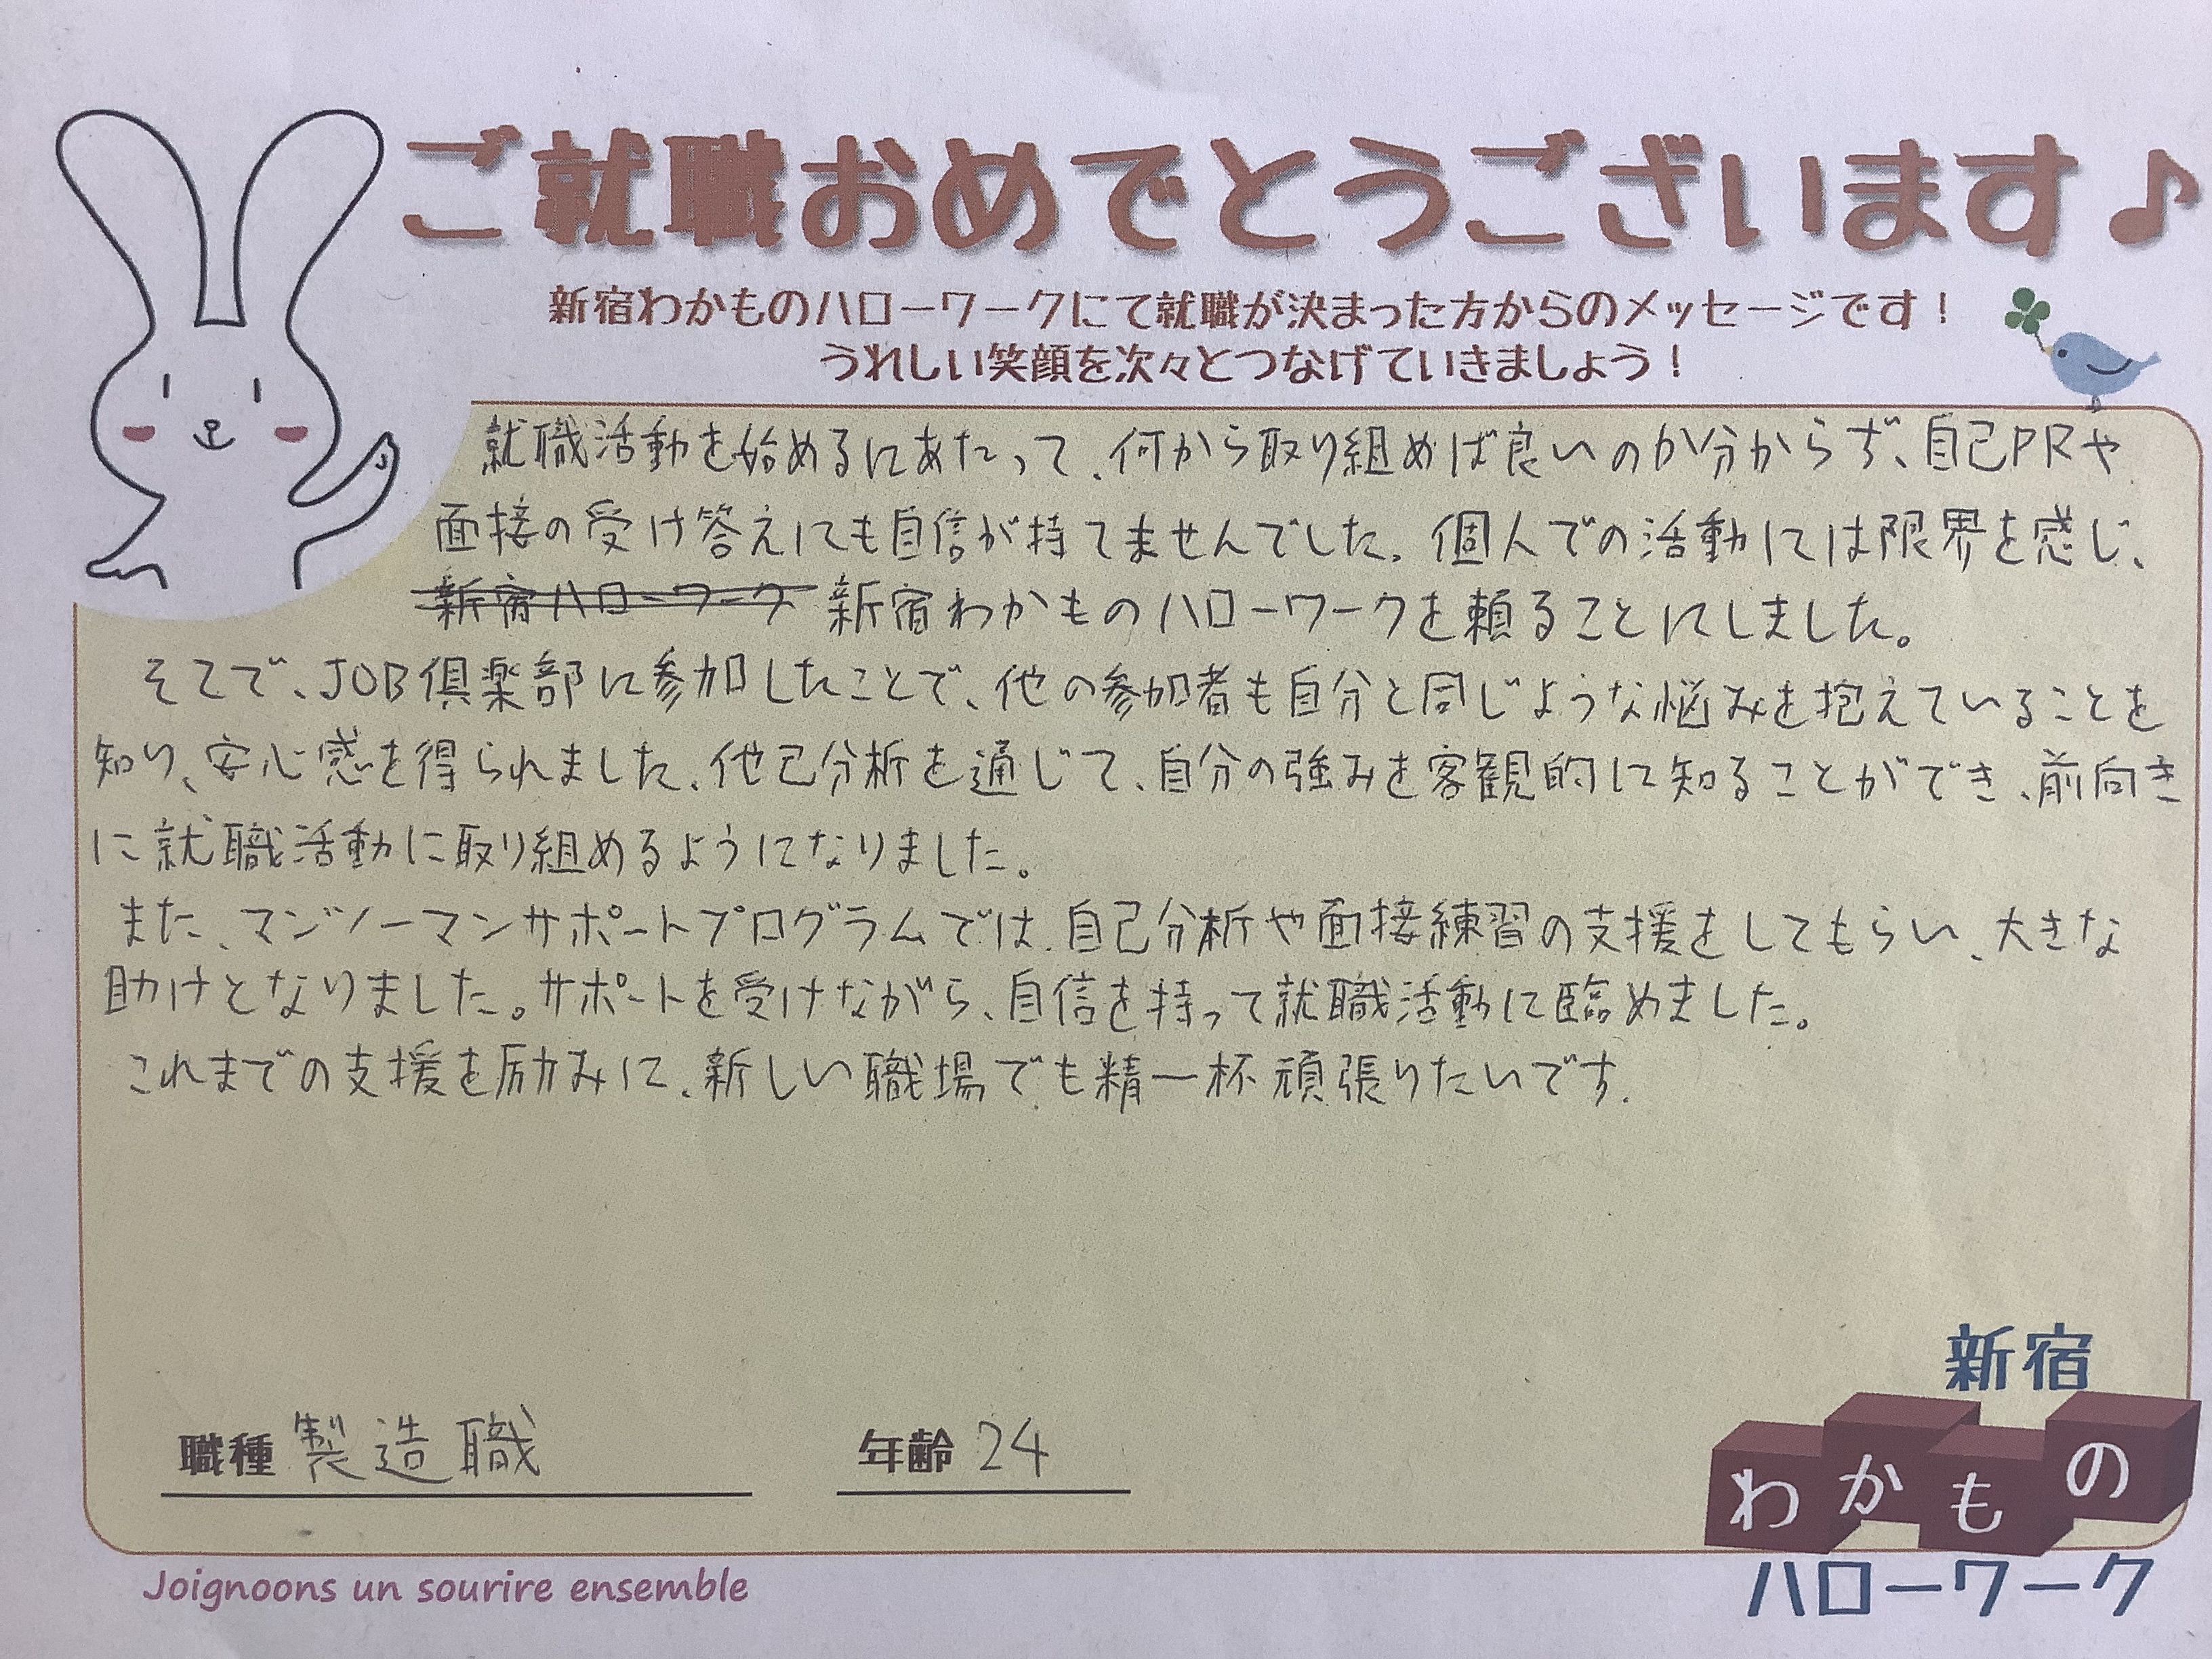 ご就職おめでとうございます♪
新宿わかものハローワークにて就職が決まった方からのメッセージです！
うれしい笑顔を次々とつなげていきましょう！
就職活動を始めるにあたって、何から取り組めば良いのか分からず、自己PRや
面接の受け答えにも自信が持てませんでした。個人での活動には限界を感じ、
新宿ハローワーク 新宿わかものハローワークを頼ることにしました。
そこで、JOB倶楽部に参加したことで、他の参加者も自分と同じような悩みを抱えていることを
知り、安心感を得られました。他己分析を通じて、自分の強みを客観的に知ることができ、前向き
に就職活動に取り組めるようになりました。
また、マンツーマンサポートプログラムでは、自己分析や面接練習の支援をしてもらい、大きな
助けとなりました。サポートを受けながら、自信を持って就職活動に臨めました。
これまでの支援を励みに、新しい職場でも精一杯頑張りたいです。
職種 製造職
年齢 24
新宿
わかもの
ハローワーク
Joignoons un sourire ensemble